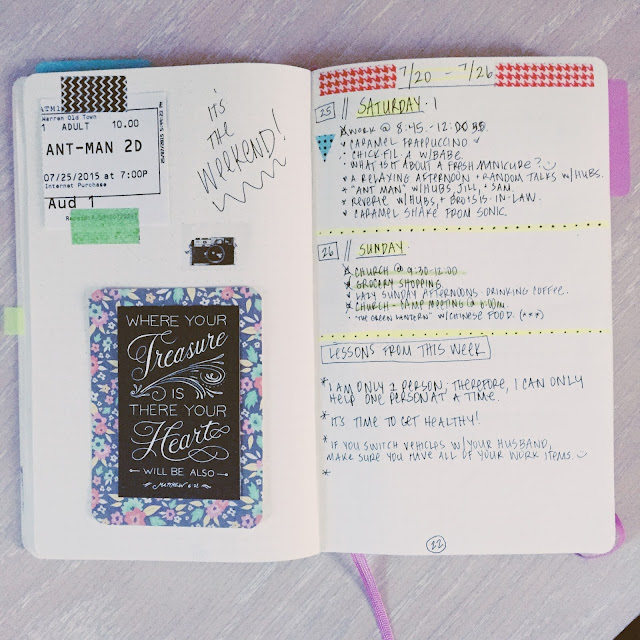 Warren Old Town
1 ADULT 10.00
ANT-MAN 2D
07/25/2015 at 7:00P
Internet Purchase
Aud 1
IT'S
THE
WEEKEND!
WHERE YOUR
Treasure
IS
THERE YOUR
Heart
WILL BE ALSO
MATTHEW 6:21
7/20 - 7/26
25 || SATURDAY.
WORK @ 8:45 - 12:
CARAMEL FRAPPUCCINO
CHICK FIL A W/BABE.
WHAT IS IT ABOUT A FRESH MANICURE?
A RELAXING AFTERNOON + RANDOM TALKS W/HUBS.
"ANT MAN" W/HUBS, JILL, + SAM.
REVERIE W/HUBS, + BRO + SIS-IN-LAW.
CARAMEL SHAKE FROM SONIC.
26 || SUNDAY.
CHURCH @ 9:30-12:00
GROCERY SHOPPING
LAZY SUNDAY AFTERNOONS DRINKING COFFEE.
CHURCH CAMP MEETING @ 6:00pm
"THE GREEN LANTERN" W/CHINESE FOOD. (***)
LESSONS FROM THIS WEEK
* I AM ONLY 1 PERSON; THEREFORE, I CAN ONLY
HELP ONE PERSON AT A TIME.
* IT'S TIME TO GET HEALTHY!
* IF YOU SWITCH VEHICLES W/YOUR HUSBAND,
MAKE SURE YOU HAVE ALL OF YOUR WORK ITEMS.
*
22